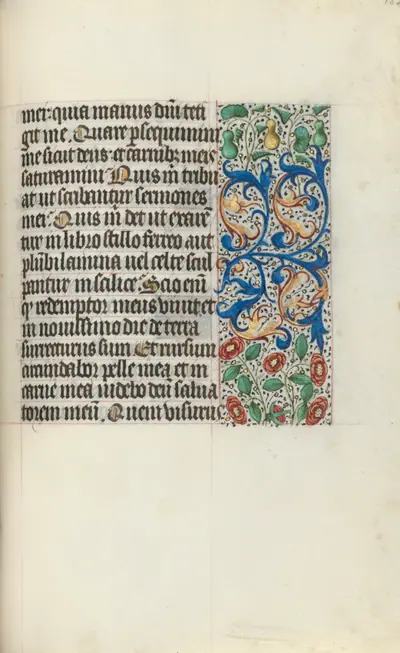 mei: quia manus dñi teti
git me. Quare ꝑsequimini
me sicut deus: et carnibꝫ meis
saturamini Quis m̄ tribu
at ut scribantur sermones
mei: Quis m̄ det ut exarē
tur in libro stillo ferreo aut
plūbi lamina uel celte scul
pantur in scilice. Scio eni͂
qͥ redemptor meus viuit et
in nouissimo die de terra
surrecturus sum Et rursum
circundabor pelle mea et in
carne mea videbo deū salua
torem meū. Quem visurus